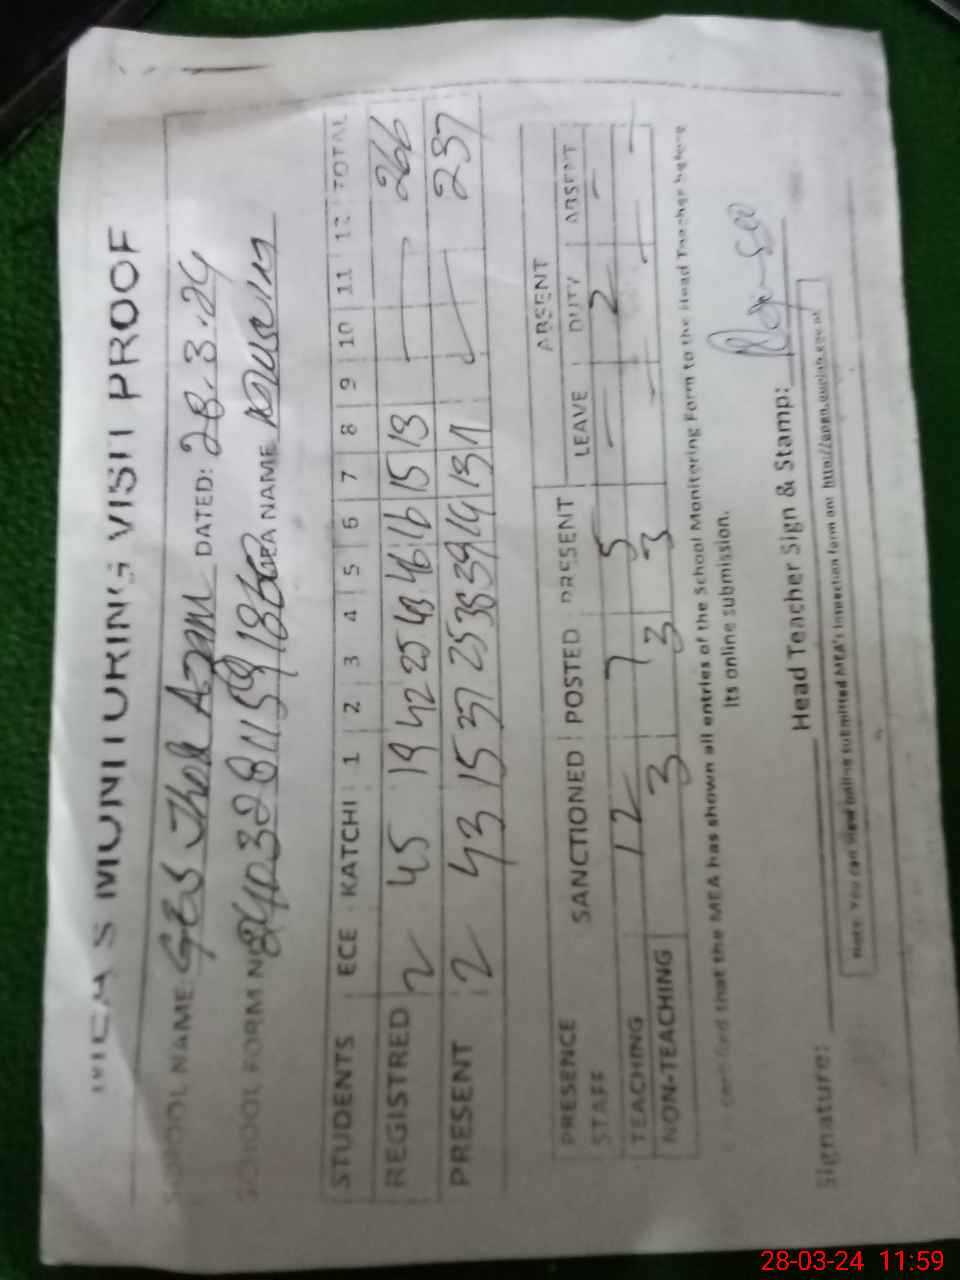 MEA'S MONITORING VISIT PROOF
SCHOOL NAME: GES Thok Azam DATED: 28.3.24
SCHOOL FORM NO MEA NAME
STUDENTS ECE KATCHI 1 2 3 4 5 6 7 8 9 10 11 12 TOTAL
REGISTRED 2 45 19 42 25 43 46 16 15 13 266
PRESENT 2 43 15 37 25 38 39 14 13 11 237
ABSENT
PRESENCE SANCTIONED POSTED PRESENT LEAVE DUTY ABSENT
STAFF
TEACHING 12 7 5 - 2 -
NON-TEACHING 3 3 3 - - -
certified that the MEA has shown all entries of the School Monitoring Form to the Head Teacher before
its online submission.
Signature: Head Teacher Sign & Stamp:
Note: You can view online submitted MEA's inspection form on:
28-03-24 11:59